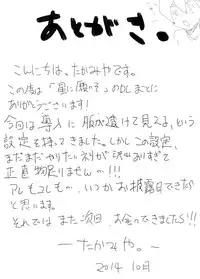 あとがき。
こんにちは、たかみやです。
この度は「星に願いを」のDLまことに
ありがとうございます!
今回は導入に服が透けて見える、という
設定を持ってきました。しかしこの設定、
まだまだやりたいネタが沢山ありすぎて
正直物足りませんの!!!
アレもコレも、いつかお披露目できたら
と思います。
それではまた次回、お会いできましたら!!
ーたかみや。ー
2014 10月